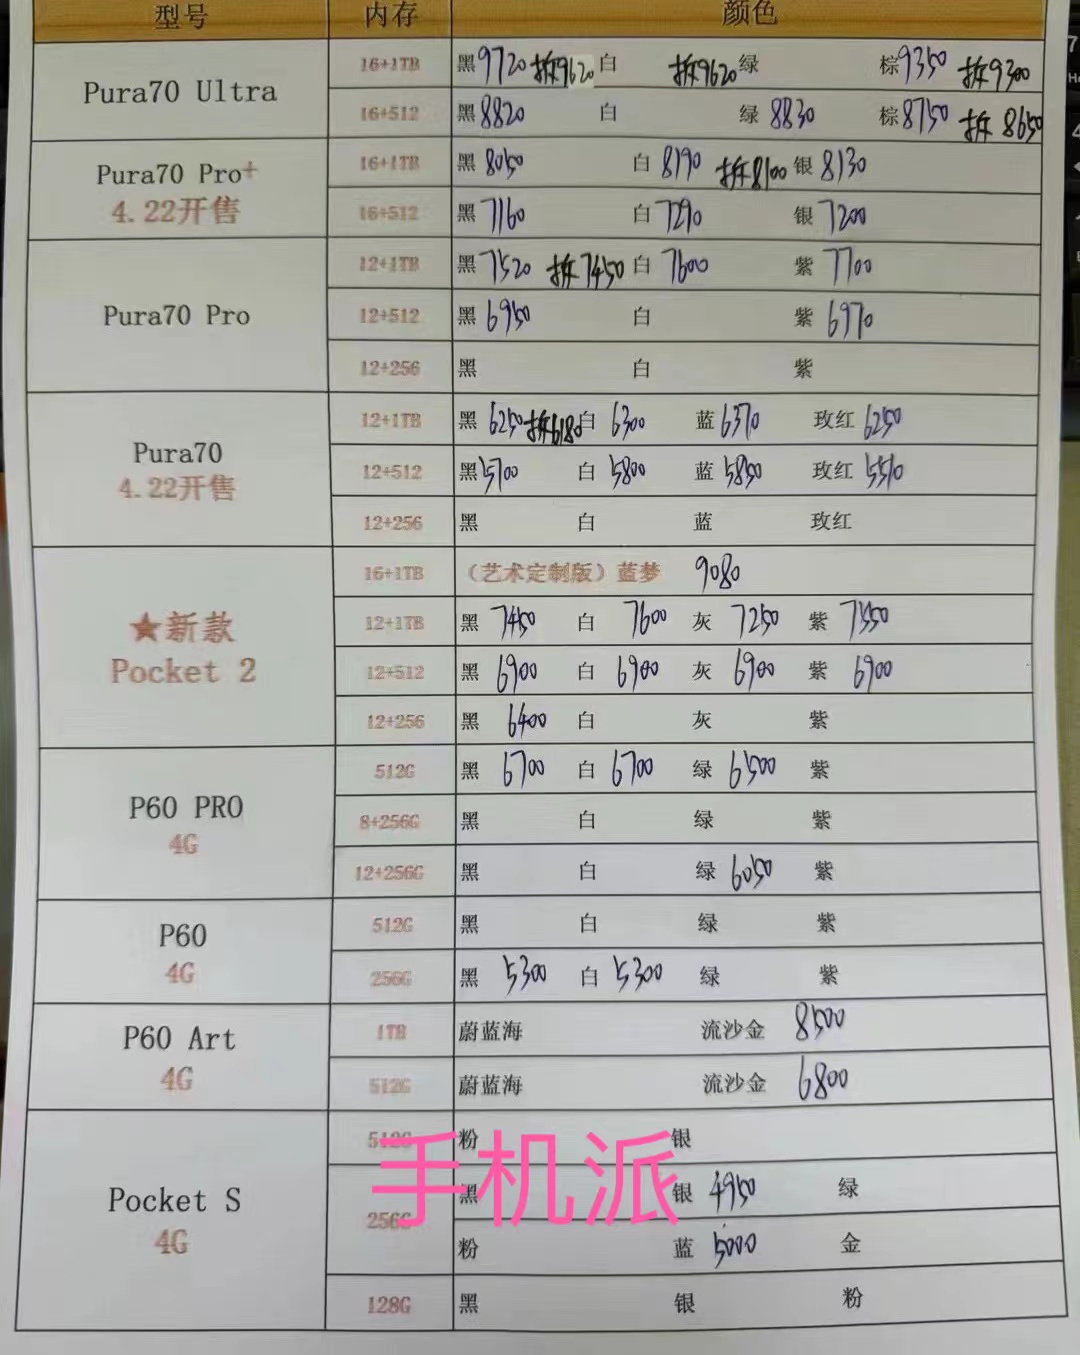 型号 内存 颜色
Pura70 Ultra
16+1TB 黑9720 拆9620 白 拆9620 绿 棕9350 拆9300
16+512 黑8820 白 绿8830 棕8750 拆8650
Pura70 Pro+
4.22开售
16+1TB 黑8050 白8190 拆8100 银8130
16+512 黑7160 白7290 银7200
Pura70 Pro
12+1TB 黑7520 拆7450 白7600 紫7700
12+512 黑6950 白 紫6970
12+256 黑 白 紫
Pura70
4.22开售
12+1TB 黑6250 拆6180 白6300 蓝6370 玫红6250
12+512 黑5700 白5800 蓝5850 玫红5510
12+256 黑 白 蓝 玫红
★新款
Pocket 2
16+1TB (艺术定制版)蓝梦 9080
12+1TB 黑7450 白7600 灰7250 紫7550
12+512 黑6900 白6900 灰6900 紫6900
12+256 黑6400 白 灰 紫
P60 PRO
4G
512G 黑6700 白6700 绿6500 紫
8+256G 黑 白 绿 紫
12+256G 黑 白 绿6050 紫
P60
4G
512G 黑 白 绿 紫
256G 黑5300 白5300 绿 紫
P60 Art
4G
1TB 蔚蓝海 流沙金 8500
512G 蔚蓝海 流沙金 6800
Pocket S
4G
512G 粉 银
256G 黑 银4950 绿
粉 蓝5000 金
128G 黑 银 粉
手机派